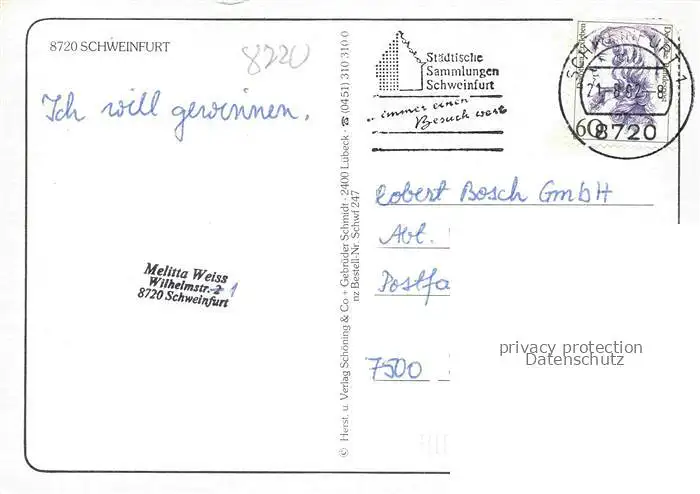 8720 SCHWEINFURT
8220
Ich will gewinnen.
Melitta Weiss
Wilhelmstr. 2 1
8720 Schweinfurt
© Herst. u. Verlag Schöning & Co + Gebrüder Schmidt · 2400 Lübeck · ☎ (0451) 310 310 0
nz Bestell-Nr. Schwf 247
Städtische
Sammlungen
Schweinfurt
immer einen
Besuch wert
SCHWEINFURT 1
8720
60
Robert Bosch GmbH
Abt.
Postfa
7500
privacy protection
Datenschutz